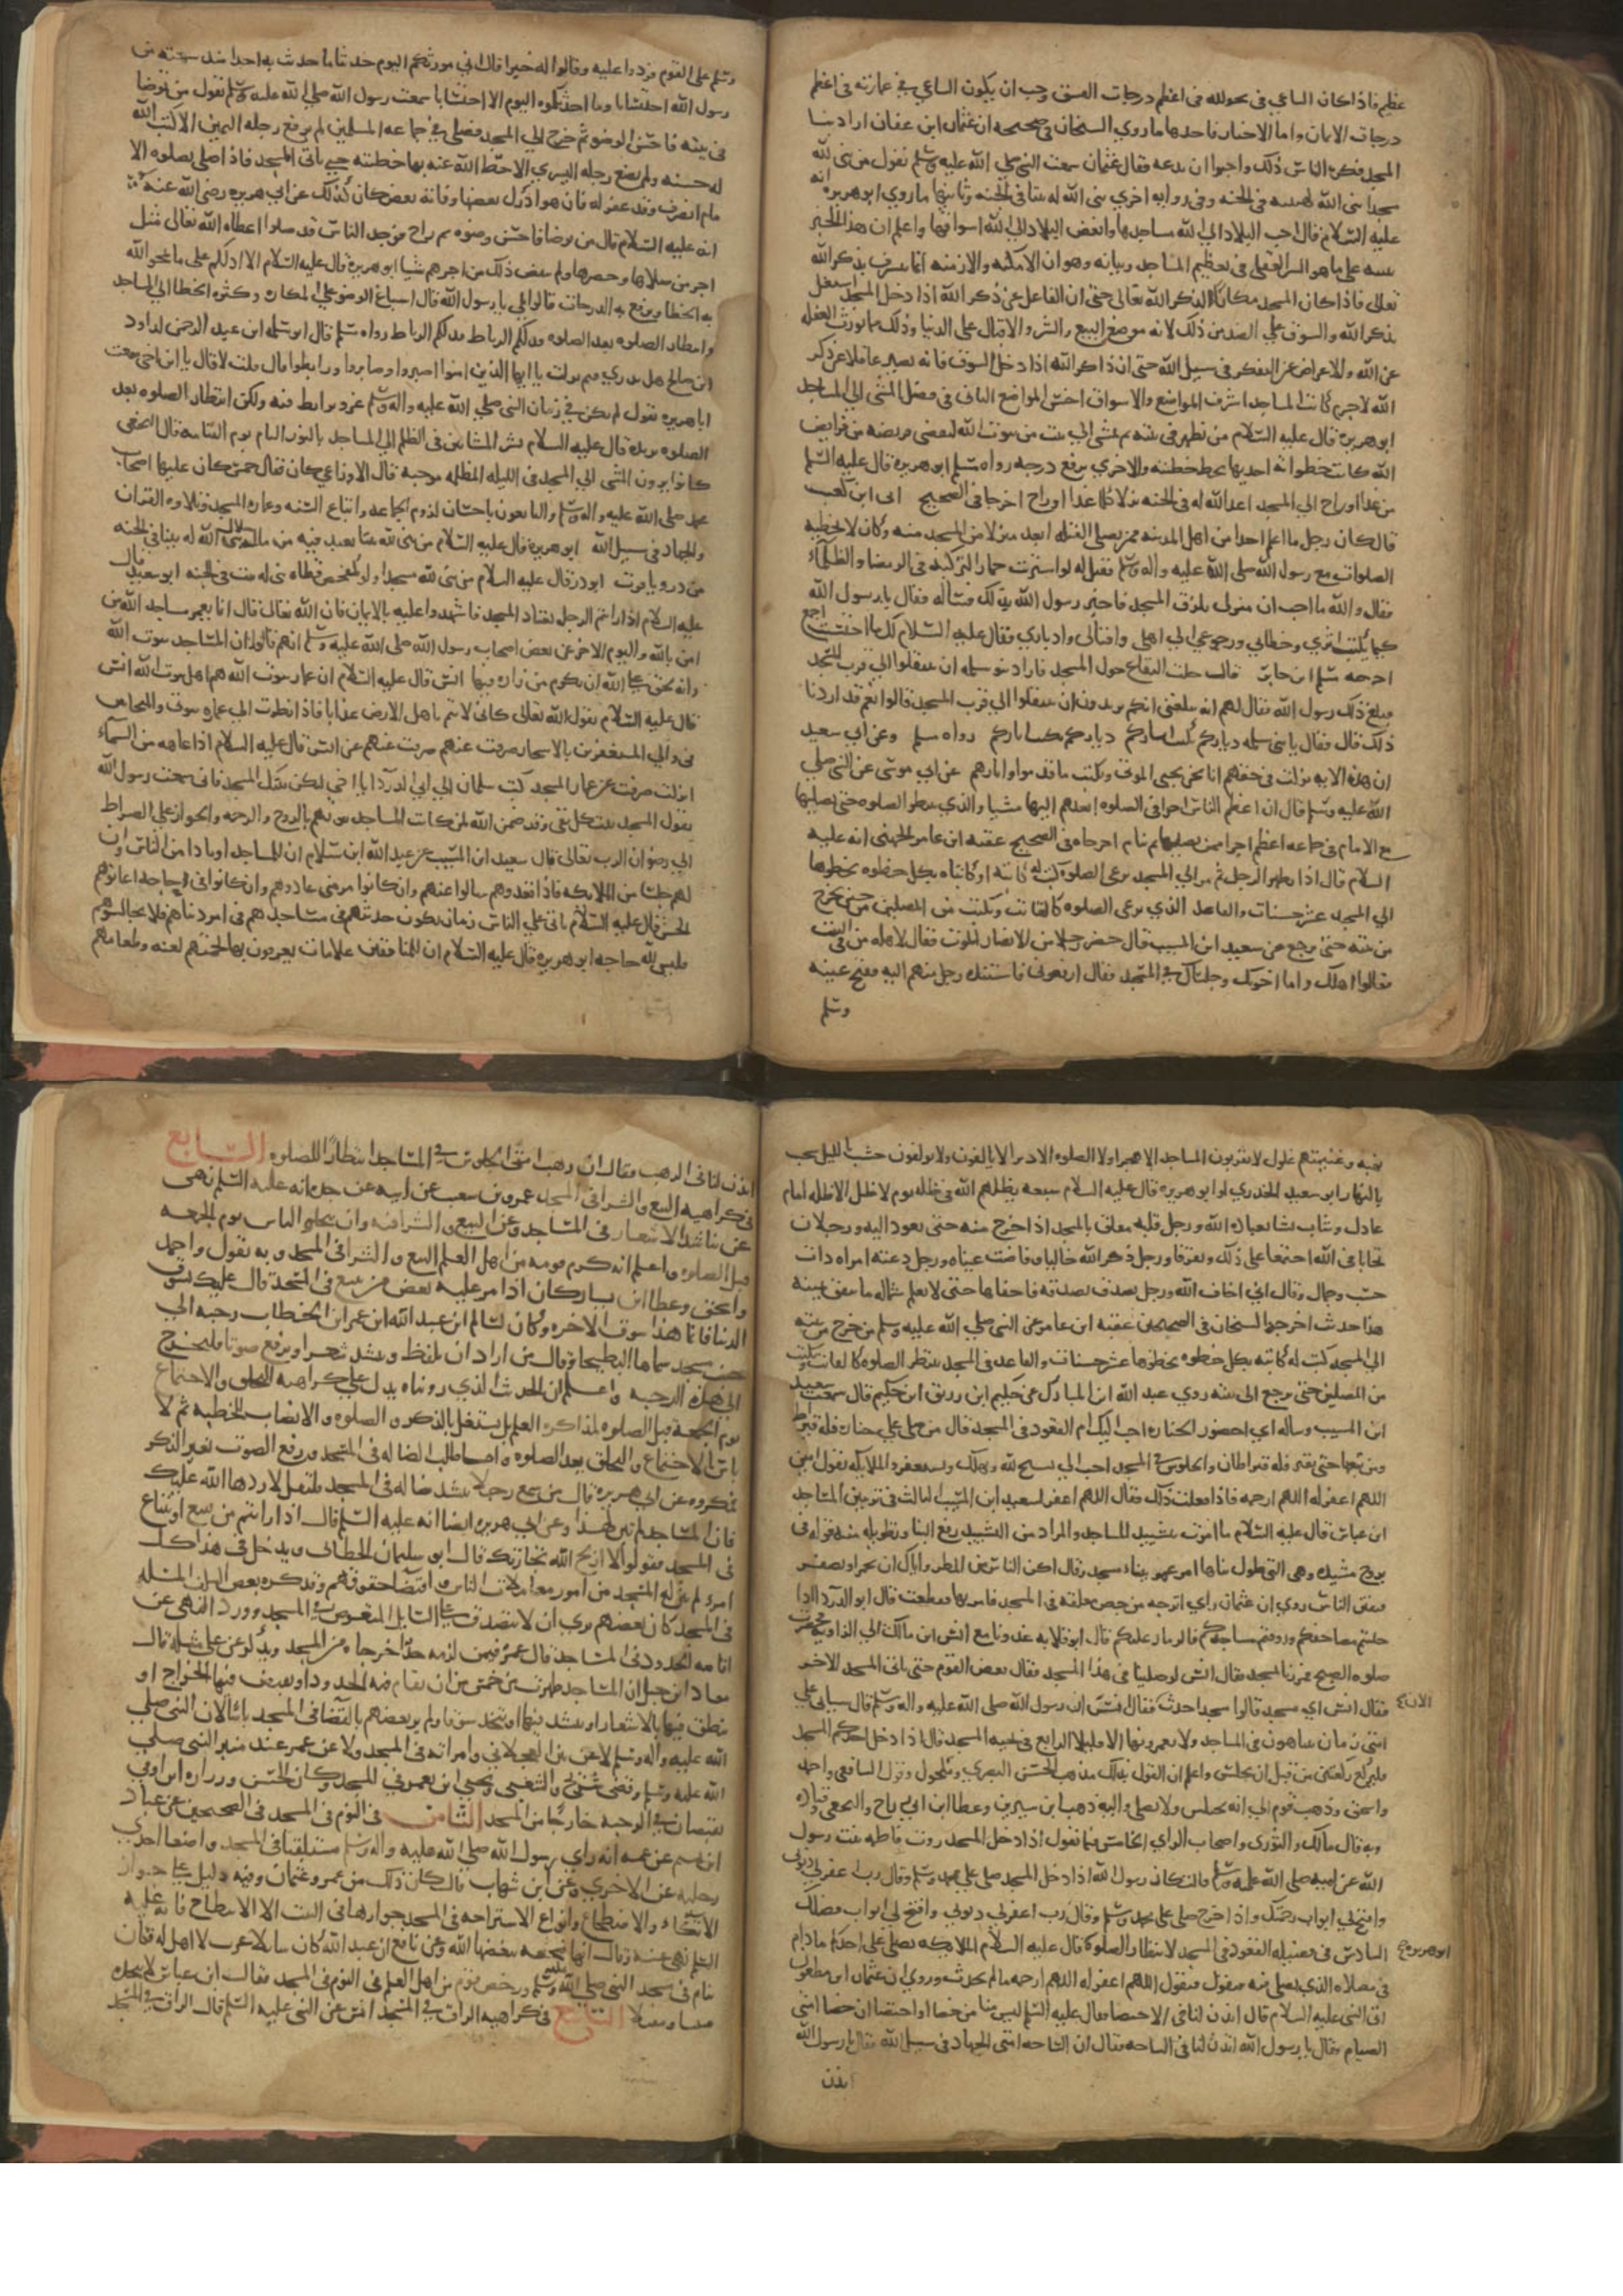 عظيم فاذا كان الساعي في تخريبه في اعظم درجات الفسق وجب ان يكون الساعي في عمارته في اعظم
درجات الايمان واما الاخبار فاحدها ما روي الشيخان في صحيحه ان عثمان ابن عفان اراد بنا
المسجد فكره الناس ذلك واحبوا ان يدعه فقال عثمان سمعت النبي صلي الله عليه وسلم يقول من بنى لله
مسجدا بنى الله له كهيئته في الجنه وفي روايه اخري بنى الله له بيتا في الجنه وثانيها ما روي ابو هريره انه
عليه السلام قال احب البلاد الي الله مساجدها وابغض البلاد الي الله اسواقها واعلم ان هذا الخبر
تنبيه على ما هو السر العقلي في تعظيم المساجد وبيانه وهو ان الامكنه والازمنه انما تشرف بذكر الله
تعالى فاذا كان المسجد مكانا لذكر الله تعالى حتى ان الغافل عن ذكر الله اذا دخل المسجد اشتغل
بذكر الله والسوق علي الضد من ذلك لانه موضع البيع والشر والاقبال على الدنيا وذلك مما يورث الغفله
عن الله والاعراض عن التفكر في سبيل الله حتى ان ذاكر الله اذا دخل السوق فانه يصير غافلا عن ذكر
الله لاجرم كانت المساجد اشرف المواضع والاسواق اخس المواضع الثاني في فضل المشي الي المساجد
ابو هريره قال عليه السلام من تطهر في بيته ثم مشى الي بيت من بيوت الله ليقضي فريضه من فرايض
الله كانت خطواته احديها تحط خطيئته والاخري ترفع درجه رواه مسلم ابو هريره قال عليه السلم
من غدا او راح الي المسجد اعد الله له في الجنه نزلا كلما غدا او راح اخرجا في الصحيح ابى ابن كعب
قال كان رجل ما اعلم احدا من اهل المدينه ممن يصلي القبله ابعد منزلا من المسجد منه وكان لا تخطيه
الصلوات مع رسول الله صلي الله عليه واله وسلم فقيل له لو اشتريت حمارا لتركبه في الرمضا والظلماء
فقال والله ما احب ان منزلي بلزق المسجد فاخبر رسول الله بذلك فسأله فقال يا رسول الله
كيما يكتب اثري وخطاي ورجوعي الي اهلي واقبالي وادباري فقال عليه السلام لك ما احتسبت اجمع
اخرجه مسلم ابن جابر قالت خلت البقاع حول المسجد فاراد بنو سلمه ان ينتقلوا الي قرب المسجد
فبلغ ذلك رسول الله فقال لهم انه بلغني انكم تريدون ان تنتقلوا الي قرب المسجد قالوا نعم قد اردنا
ذلك قال فقال يا بني سلمه دياركم تكتب اثاركم دياركم تكتب اثاركم رواه مسلم وعن ابي سعيد
ان هذه الايه نزلت في حقهم انا نحن نحيى الموتى ونكتب ما قدموا واثارهم عن ابي موسى عن النبي صلي
الله عليه وسلم قال ان اعظم الناس اجرا في الصلوه ابعدهم اليها مشيا والذي ينتظر الصلوه حتى يصليها
مع الامام في جماعه اعظم اجرا ممن يصليها ثم نام اخرجاه في الصحيح عقبه ابن عامر الجهني انه عليه
السلام قال اذا تطهر الرجل ثم مر الي المسجد يرعى الصلوه كتب له كاتبه او كاتباه بكل خطوه يخطوها
الي المسجد عشر حسنات والقاعد الذي يرعى الصلوه كالقانت ويكتب من المصلين من حين يخرج
من بيته حتى يرجع عن سعيد ابن المسيب قال حضر رجلا من الانصار الموت فقال لاهله من في البيت
فقالوا اهلك واما اخوتك وجلساك في المسجد فقال ارفعوني فاسنده رجل منهم اليه ففتح عينيه
وسلم
وسلم على القوم فردوا عليه وقالوا له خيرا قال اني مورثكم اليوم حديثا ما حدثت به احدا منذ سمعته من
رسول الله احتسابا وما احدثكموه اليوم الا احتسابا سمعت رسول الله صلي الله عليه وسلم يقول من توضا
في بيته فاحسن الوضو ثم خرج الي المسجد فصلى في جماعه المسلمين لم يرفع رجله اليمنى الا كتب الله
له حسنه ولم يضع رجله اليسري الا حط الله عنه بها خطيئته حتى ياتى المسجد فاذا صلى بصلوه الا
مام انصرف وقد غفر له فان هو ادرك بعضها وفاته بعض كان كذلك عن ابي هريره رضي الله عنه
انه عليه السلام قال من توضا فاحسن وضوه ثم راح فوجد الناس قد صلوا اعطاه الله تعالى مثل
اجر من صلاها وحضرها ولم ينقص ذلك من اجرهم شيا ابو هريره قال عليه السلام الا ادلكم على ما يمحو الله
به الخطايا ويرفع به الدرجات قالوا بلي يا رسول الله قال اسباغ الوضو علي المكاره وكثره الخطا الي المساجد
وانتظار الصلوه بعد الصلوه فذلكم الرباط فذلكم الرباط رواه مسلم قال ابو سلمه ابن عبد الرحمن لداود
ابن صالح هل تدري فيم نزلت يا ايها الذين امنوا اصبروا وصابروا ورابطوا قال قلت لا قال يا ابن اخي سمعت
ابا هريره يقول لم يكن في زمان النبي صلي الله عليه واله وسلم غزو يرابط فيه ولكن انتظار الصلوه بعد
الصلوه بريده قال عليه السلام بشر المشائين في الظلم الي المساجد بالنور التام يوم القيامه قال النخعي
كانوا يرون المشي الي المسجد في الليله المظلمه موجبه قال الاوزاعي كان يقال خمس كان عليها اصحاب
محمد صلى الله عليه واله وسلم والتابعون باحسان لزوم الجماعه واتباع السنه وعماره المسجد وتلاوه القران
والجهاد في سبيل الله ابو هريره قال عليه السلام من بنى لله بيتا يعبد فيه من مال حلال بنى الله له بيتا في الجنه
من در وياقوت ابو ذر قال عليه السلام من بنى لله مسجدا ولو كمفحص قطاه بنى له بيت في الجنه ابو سعيد قال
عليه السلام اذا رايتم الرجل يعتاد المسجد فاشهدوا عليه بالايمان فان الله تعالى قال انما يعمر مساجد الله من
امن بالله واليوم الاخر عن بعض اصحاب رسول الله صلى الله عليه وسلم انهم قالوا ان المساجد بيوت الله
وانه لحق على الله ان يكرم من زاره فيها انس قال عليه السلام ان عمار بيوت الله هم اهل بيوت الله انس
قال عليه السلام يقول الله تعالى كانى لاهم باهل الارض عذابا فاذا نظرت الي عمار بيوتي والمتحابين
في والي المستغفرين بالاسحار صرفت عنهم صرفت عنهم عن انس قال عليه السلام اذا عاهه من السماء
انزلت صرفت عن عمار المسجد كتب سلمان الي ابي الدرداء يا اخي ليكن بيتك المسجد فاني سمعت رسول الله
يقول المسجد بيت كل تقي وقد ضمن الله لمن كانت المساجد بيوتهم بالروح والرحمه والجواز على الصراط
الي رضوان الرب تعالى قال سعيد ابن المسيب عن عبد الله ابن سلام ان للمساجد اوتادا من الناس وان
لهم جلسا من الملايكه فاذا فقدوهم سالوا عنهم وان كانوا مرضى عادوهم وان كانوا في حاجه اعانوهم
الحسن قال عليه السلام ياتى علي الناس زمان يكون حديثهم في مساجدهم في امر دنياهم فلا تجالسوهم
فليس لله حاجه ابو هريره قال عليه السلام ان للمنافقين علامات يعرفون بها تحيتهم لعنه وطعامهم
نهبه وغنيمتهم غلول لا يقربون المساجد الا هجرا ولا الصلوه الا دبرا لا يالفون ولا يولفون خشب بالليل سحب
بالنهار ابو سعيد الخدري او ابو هريره قال عليه السلام سبعه يظلهم الله في ظله يوم لا ظل الا ظله امام
عادل وشاب نشا بعباده الله ورجل قلبه معلق بالمسجد اذا خرج منه حتى يعود اليه ورجلان
تحابا في الله اجتمعا على ذلك وتفرقا ورجل ذكر الله خاليا ففاضت عيناه ورجل دعته امراه ذات
حسب وجمال وقال اني اخاف الله ورجل تصدق بصدقه فاخفاها حتى لا تعلم شماله ما تنفق يمينه
هذا حديث اخرجه الشيخان في الصحيحين عقبه ابن عامر عن النبي صلي الله عليه وسلم من خرج من بيته
الي المسجد كتب له كاتبه بكل خطوه يخطوها عشر حسنات والقاعد في المسجد ينتظر الصلوه كالقانت ويكتب
من المصلين حتى يرجع الى بيته روي عبد الله ابن المبارك عن حكيم ابن رزيق ابن حكيم قال سمعت سعيد
ابن المسيب وساله ابي احضور الجنازه احب اليك ام القعود في المسجد قال من صلي علي جنازه فله قيراط
ومن تبعها حتى تقبر فله قيراطان والجلوس في المسجد احب الي تسبح لله وتهلل وتستغفر والملايكه تقول امين
اللهم اغفر له اللهم ارحمه فاذا فعلت ذلك فقال اللهم اغفر لسعيد ابن المسيب الثالث في تزيين المساجد
ابن عباس قال عليه السلام ما امرت بتشييد المساجد والمراد من التشييد رفع البنا وتطويله منه قوله في
بروج مشيده وهي التي طول بناها امر عمر ببناء مسجد وقال اكن الناس من المطر واياك ان تحمر او تصفر
فتفتن الناس روي ان عثمان راي اترجه من جص معلقه في المسجد فامر بها فقطعت قال ابو الدرداء اذا
حليتم مصاحفكم وزوقتم مساجدكم فالدمار عليكم قال ابو قلابه غدونا مع انس ابن مالك الي الزاويه فحضرت
صلوه الصبح فمررنا بمسجد فقال انس لو صلينا في هذا المسجد فقال بعض القوم حتى ناتى المسجد الاخر
فقال انس اي مسجد قالوا مسجدا احدث الان فقال انس ان رسول الله صلى الله عليه واله وسلم قال سياتى علي
امتي زمان يتباهون في المساجد ولا يعمرونها الا قليلا الرابع في تحيه المسجد قال اذا دخل احدكم المسجد
فليركع ركعتين من قبل ان يجلس واعلم ان القول بذلك مذهب الحسن البصري ومكحول وقول الشافعي واحمد
واسحق وذهب قوم الي انه يجلس ولا يصلي واليه ذهب ابن سيرين وعطا ابن ابي رباح والنخعي وقتاده
وبه قال مالك والثوري واصحاب الراي الخامس فيما يقول اذا دخل المسجد روت فاطمه بنت رسول
الله عن ابيه صلى الله عليه وسلم قالت كان رسول الله اذا دخل المسجد صلي علي محمد وسلم وقال رب اغفر لي ذنوبي
وافتح لي ابواب رحمتك واذا خرج صلي على محمد وسلم وقال رب اغفر لي ذنوبي وافتح لي ابواب فضلك
السادس في فضيله القعود في المسجد لانتظار الصلوه ابو هريره قال عليه السلام الملايكه تصلى على احدكم ما دام
في مصلاه الذي يصلي فيه فتقول اللهم اغفر له اللهم ارحمه ما لم يحدث وروي ان عثمان ابن مظعون
اتى النبي عليه السلام قال ايذن لنا في الاختصا فقال عليه السلم ليس منا من خصا او اختصا ان خصا امتي
الصيام فقال يا رسول الله ايذن لنا في السياحه فقال ان سياحه امتي الجهاد في سبيل الله فقال يا رسول الله
ايذن
ايذن لنا في الترهب فقال ان رهب امتي الجلوس في المساجد انتظارا للصلوه السابع
في كراهيه البيع والشرا في المسجد عمرو بن شعيب عن ابيه عن جده انه عليه السلم نهى
عن تناشد الاشعار في المساجد وعن البيع والشرا فيه وان يتحلق الناس يوم الجمعه
قبل الصلوه واعلم انه كره قوم من اهل العلم البيع والشرا في المسجد وبه يقول واحمد
واسحق وعطا ابن يسار كان اذا مر عليه بعض من يبيع في المسجد قال عليك بسوق
الدنيا فانما هذا سوق الاخره وكان لسالم ابن عبد الله ابن عمر ابن الخطاب رحبه الي
جنب مسجد سماها البطيحا وقال من اراد ان يلغط وينشد شعرا او يرفع صوتا فليخرج
الي هذه الرحبه واعلم ان الحديث الذي رويناه يدل علي كراهيه التحلق والاجتماع
يوم الجمعه قبل الصلوه لمذاكره العلم بل يشتغل بالذكر والصلوه والانصات للخطبه ثم لا
باس بالاجتماع والتحلق بعد الصلوه واما طلب الضاله في المسجد ورفع الصوت بغير الذكر
فمكروه عن ابي هريره قال من سمع رجلا ينشد ضاله في المسجد فليقل لا ردها الله عليك
فان المساجد لم تبن لهذا وعن ابي هريره ايضا انه عليه السلم قال اذا رايتم من يبيع او يبتاع
في المسجد فقولوا لا اربح الله تجارتك قال ابو سليمان الخطابي ويدخل في هذا كل
امر لم يبن له المسجد من امور معاملات الناس واقتضا حقوقهم وقد كره بعض السلف المسئله
في المسجد وكان بعضهم يري ان لا يتصدق علي السايل المتعرض في المسجد وورد النهي عن
اقامه الحدود في المساجد قال عمر فيمن لزمه حد اخرجاه من المسجد ويذكر عن علي مثله قال
معاذ ابن جبل ان المساجد طهرت من خمس من ان يقام فيه الحدود او يقبض فيها الخراج او
ينطق فيها بالاشعار او ينشد فيها او يتخذ سوقا ولم ير بعضهم بالقضا في المسجد باسا لان النبي صلي
الله عليه واله وسلم لاعن بين العجلاني وامراته في المسجد ولاعن عمر عند منبر النبي صلى
الله عليه وسلم وقضى شريح والشعبي ويحيى ابن يعمر في المسجد وكان الحسن وزراره ابن اوفى
يقضيان في الرحبه خارجا من المسجد الثامن في النوم في المسجد في الصحيحين عن عباد
ابن تميم عن عمه انه راي رسول الله صلي الله عليه واله وسلم مستلقيا في المسجد واضعا احدي
رجليه على الاخري وعن ابن شهاب قال كان ذلك من عمر وعثمان وفيه دليل علي جواز
الاتكاء والاضطجاع وانواع الاستراحه في المسجد جوازها في البيت الا الانبطاح فانه عليه
السلم نهى عنه وقال انها ضجعه يبغضها الله وعن نافع ان عبد الله كان شابا اعزب لا اهل له فكان
ينام في مسجد النبي صلي الله عليه وسلم ورخص قوم من اهل العلم في النوم في المسجد فقال ابن عباس لا تتخذوه
مبيتا ومقيلا التاسع في كراهيه البزاق في المسجد انس عن النبي عليه السلم قال البزاق في المسجد